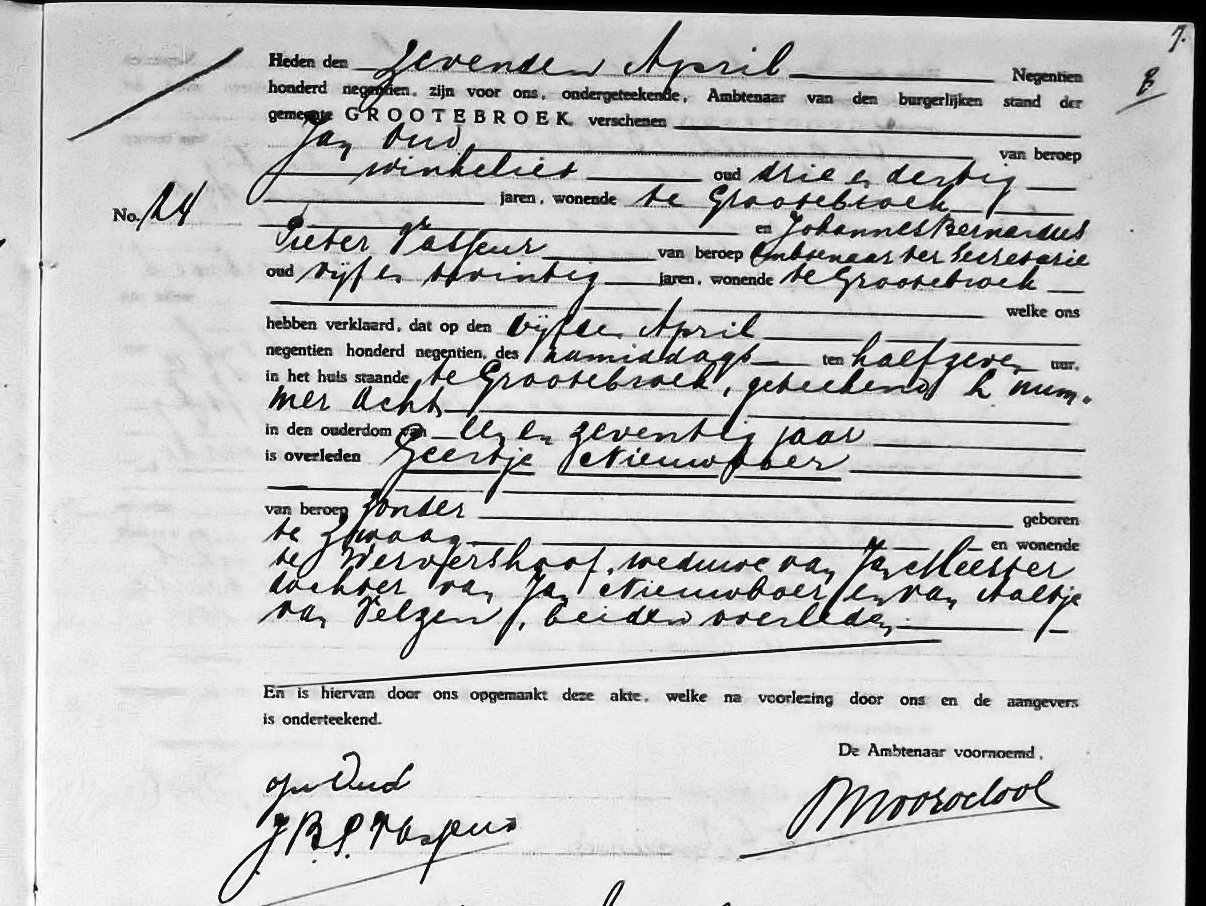 7.
8
Heden den zevenden April Negentien
honderd negentien, zijn voor ons, ondergeteekende, Ambtenaar van den burgerlijken stand der
gemeente GROOTEBROEK verschenen
Jan Oud van beroep
winkelier oud drie en dertig
No. 24 jaren, wonende te Grootebroek
en Johannes Bernardus
Pieter Vasseur van beroep Ambtenaar ter Secretarie
oud vijf en twintig jaren, wonende te Grootebroek
welke ons
hebben verklaard, dat op den vijfden April
negentien honderd negentien, des namiddags ten half zeven uur,
in het huis staande te Grootebroek, geteekend h num-
mer acht
in den ouderdom van een en zeventig jaar
is overleden Geertje Nieuwboer
van beroep zonder geboren
te Zwaag en wonende
te Wervershoof, weduwe van Jan Meester
dochter van Jan Nieuwboer en van Aaltje
van Velzen, beiden overleden.
En is hiervan door ons opgemaakt deze akte, welke na voorlezing door ons en de aangevers
is onderteekend.
De Ambtenaar voornoemd,
Jn Oud
J B P Vasseur